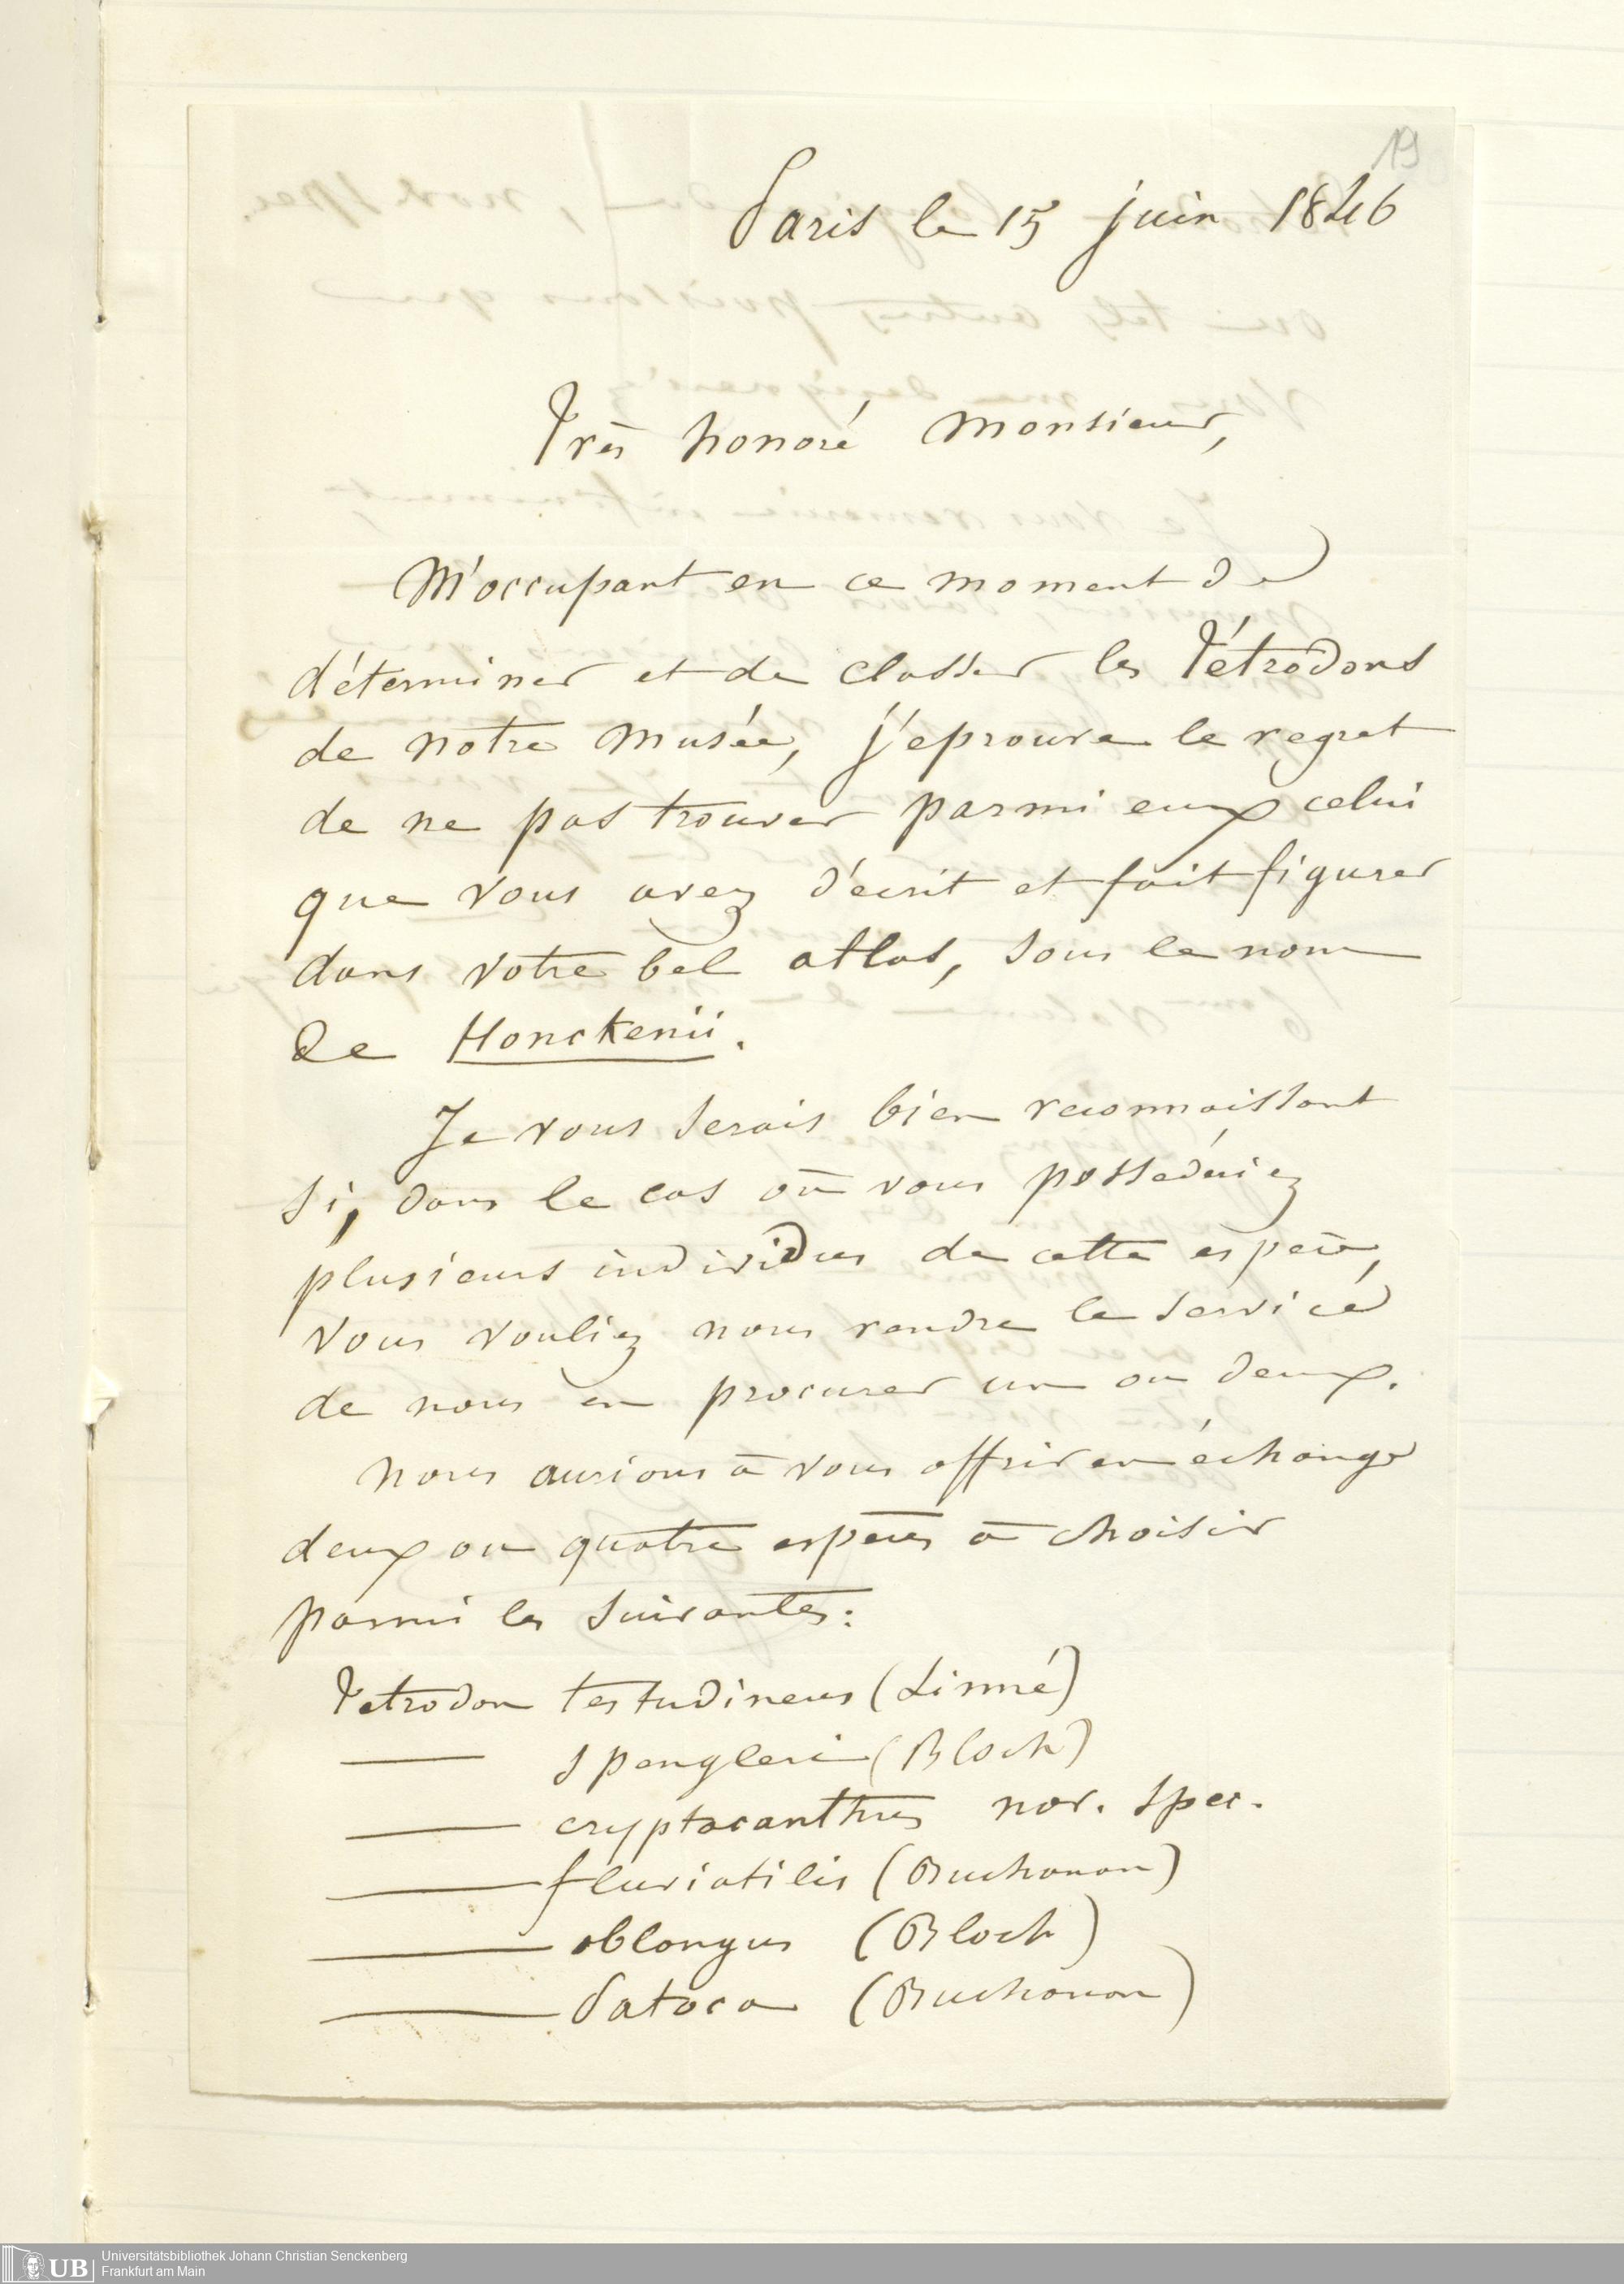 19
Paris le 15 juin 1846
Très honoré Monsieur,
M'occupant en ce moment de
déterminer et de classer les Tétrodons
de notre Musée, j'eprouve le regret
de ne pas trouver parmi eux celui
que vous avez décrit et fait figurer
dans votre bel atlas, sous le nom
de Honckenii.
Je vous serais bien reconnaissant
si, dans le cas où vous possederiez
plusieurs individus de cette espèce,
vous vouliez nous rendre le service
de nous en procurer un ou deux.
Nous aurions à vous offrir en échange
deux ou quatre espèces à choisir
parmi les suivantes:
Tetrodon testudineus (Linné)
— spengleri (Bloch)
— cryptacanthus nov. spec.
— fluviatilis (Buchanan)
— oblongus (Bloch)
— Patoca (Buchanan)
UB Universitätsbibliothek Johann Christian Senckenberg
Frankfurt am Main